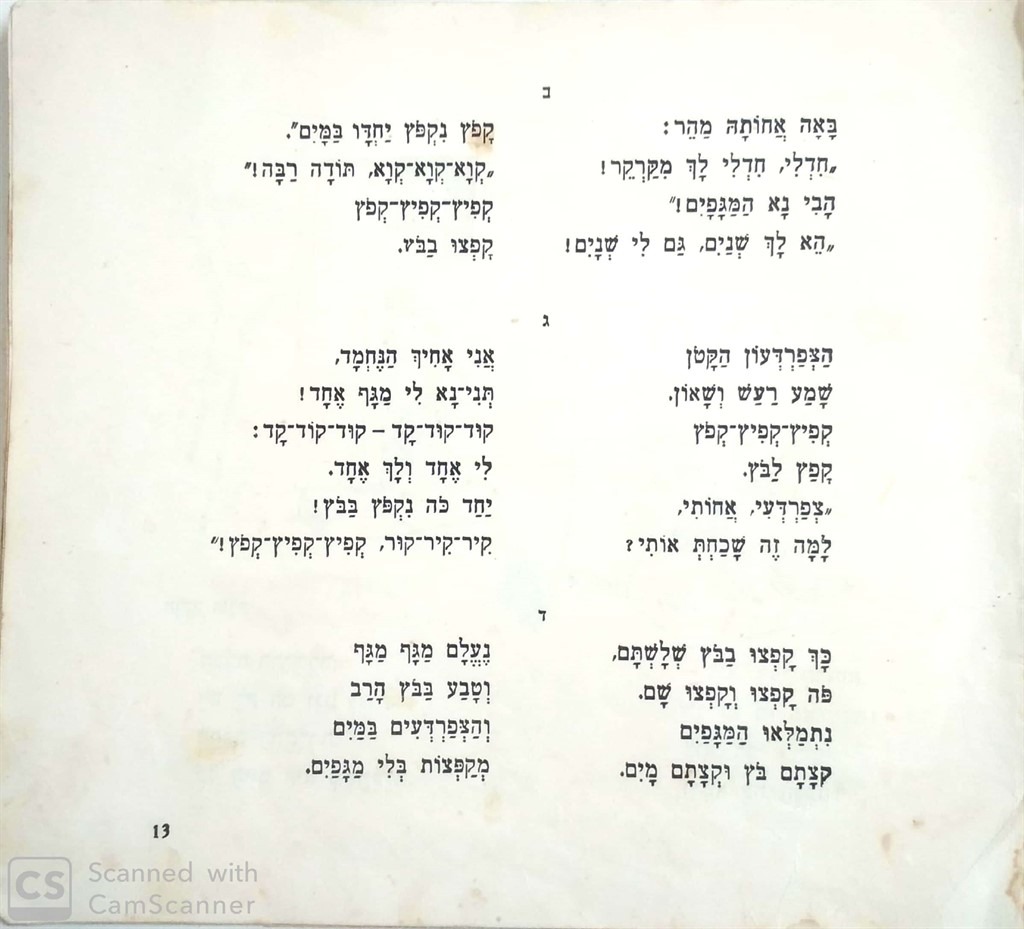 ב
בָּאָה אֲחוֹתָהּ מַהֵר:
„חִדְלִי, חִדְלִי לָךְ מִקַּרְקֵר!
הָבִי נָא הַמַּגָּפָיִם!"
„הֵא לָךְ שְׁנַיִם, גַּם לִי שְׁנָיִם!
קָפֹץ נִקְפֹּץ יַחְדָּו בַּמָּיִם".
„קְוָא־קְוָא־קְוָא, תּוֹדָה רַבָּה!"
קְפִיץ־קְפִיץ־קְפֹץ
קָפְצוּ בַבֹּץ.
ג
הַצְּפַרְדְּעוֹן הַקָּטֹן
שָׁמַע רַעַשׁ וְשָׁאוֹן.
קְפִיץ־קְפִיץ־קְפֹץ
קָפַץ לַבֹּץ.
„צְפַרְדְּעִי, אֲחוֹתִי,
לָמָּה זֶה שָׁכַחְתְּ אוֹתִי?
אֲנִי אָחִיךְ הַנֶּחְמָד,
תְּנִי־נָא לִי מַגָּף אֶחָד!
קוּד־קוּד־קָד – קוּד־קוֹד־קָד:
לִי אֶחָד וְלָךְ אֶחָד.
יַחַד כֹּה נִקְפֹּץ בַּבֹּץ!
קִיר־קִיר־קוּר, קְפִיץ־קְפִיץ־קְפֹץ!"
ד
כָּךְ קָפְצוּ בַבֹּץ שְׁלָשְׁתָּם,
פֹּה קָפְצוּ וְקָפְצוּ שָׁם.
נִתְמַלְּאוּ הַמַּגָּפַיִם
קְצָתָם בֹּץ וּקְצָתָם מָיִם.
נֶעֱלַם מַגָּף מַגָּף
וְטָבַע בַּבֹּץ הָרַב
וְהַצְּפַרְדְּעִים בַּמַּיִם
מְקַפְּצוֹת בְּלִי מַגָּפַיִם.
13
CS Scanned with
CamScanner